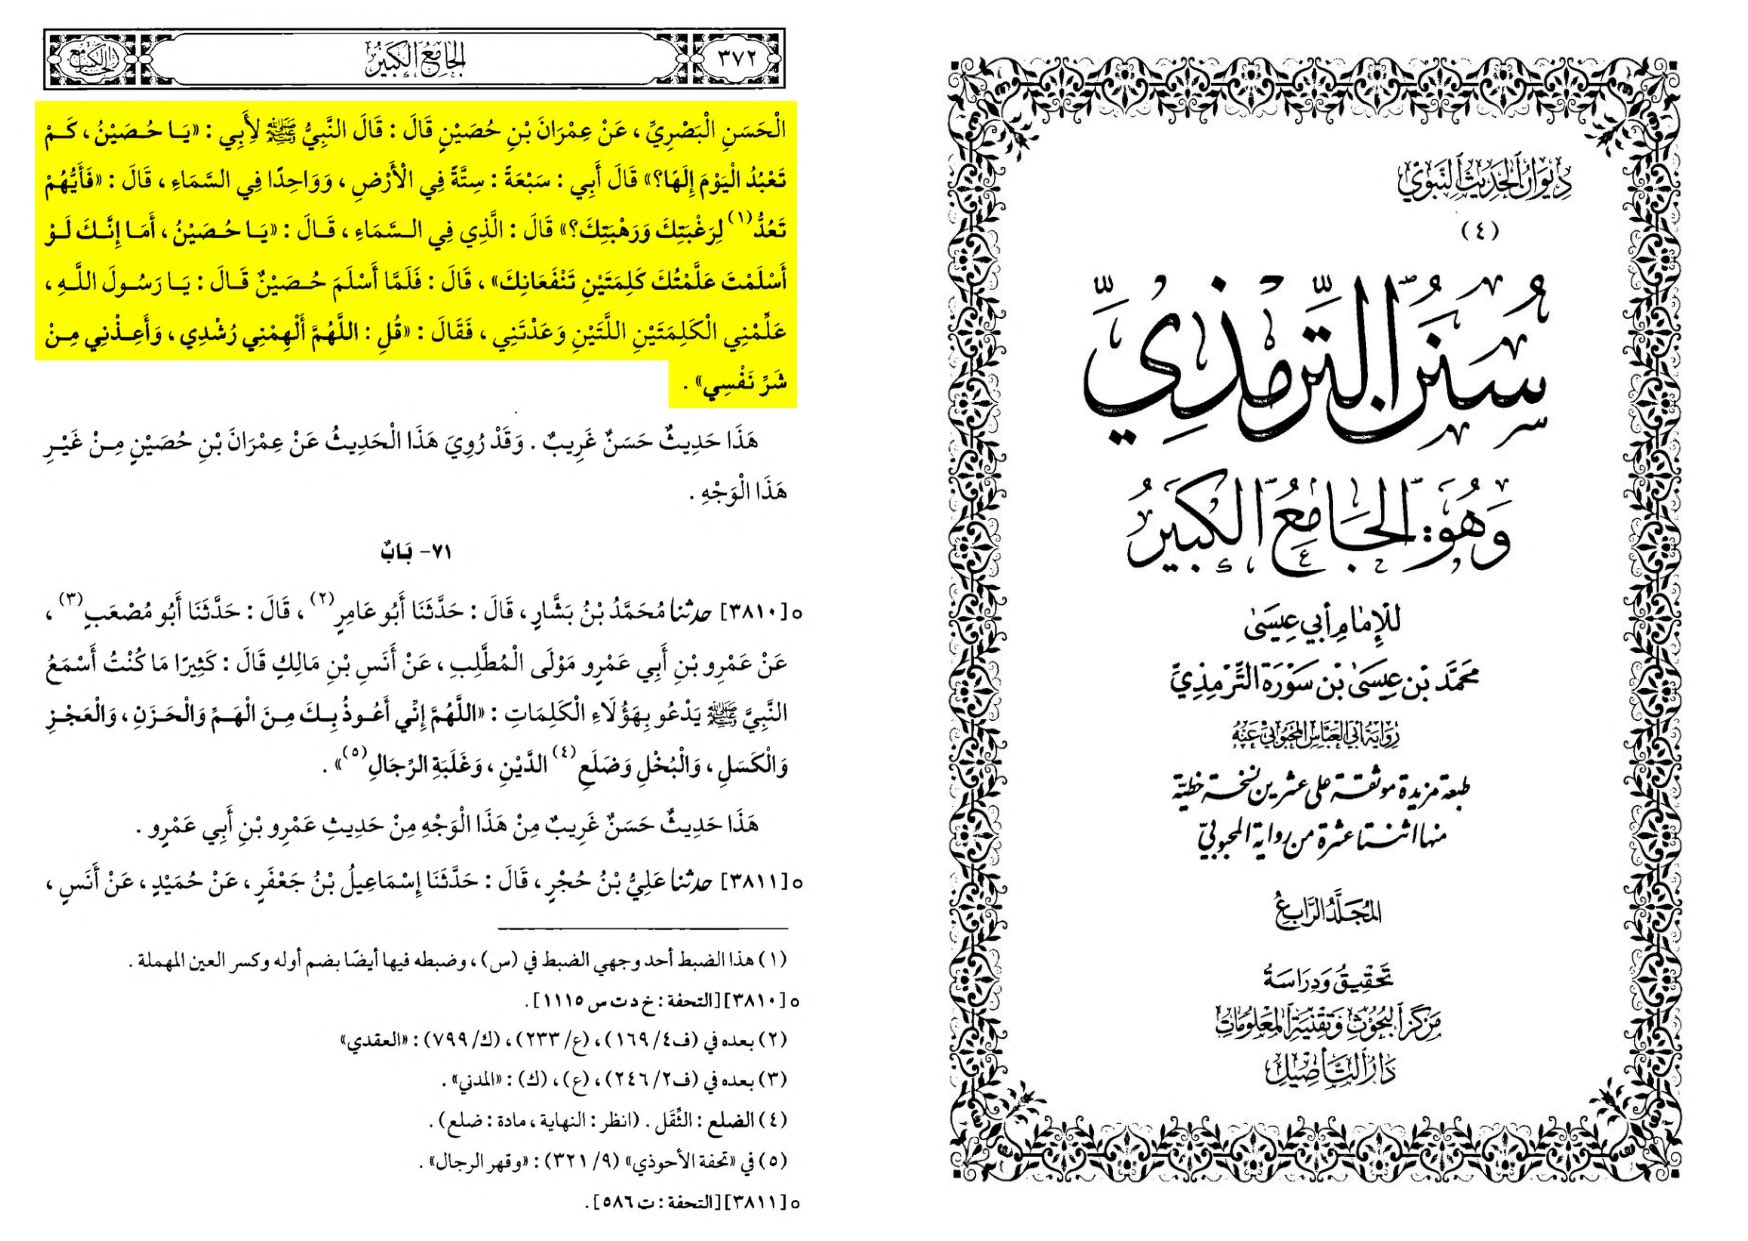 الجامع الكبير
٣٧٢
الْحَسَنِ الْبَصْرِيِّ ، عَنْ عِمْرَانَ بْنِ حُصَيْنٍ قَالَ : قَالَ النَّبِيُّ ﷺ لِأَبِي : «يَا حُصَيْنُ ، كَمْ
تَعْبُدُ الْيَوْمَ إِلَهًا؟» قَالَ أَبِي : سَبْعَةً : سِتَّةً فِي الْأَرْضِ ، وَوَاحِدًا فِي السَّمَاءِ ، قَالَ : «فَأَيُّهُمْ
تَعُدُّ(١) لِرَغْبَتِكَ وَرَهْبَتِكَ؟» قَالَ : الَّذِي فِي السَّمَاءِ ، قَالَ : «يَا حُصَيْنُ ، أَمَا إِنَّكَ لَوْ
أَسْلَمْتَ عَلَّمْتُكَ كَلِمَتَيْنِ تَنْفَعَانِكَ» ، قَالَ : فَلَمَّا أَسْلَمَ حُصَيْنٌ قَالَ : يَا رَسُولَ اللَّهِ ،
عَلِّمْنِي الْكَلِمَتَيْنِ اللَّتَيْنِ وَعَدْتَنِي ، فَقَالَ : «قُلِ : اللَّهُمَّ أَلْهِمْنِي رُشْدِي ، وَأَعِذْنِي مِنْ
شَرِّ نَفْسِي» .
هَذَا حَدِيثٌ حَسَنٌ غَرِيبٌ . وَقَدْ رُوِيَ هَذَا الْحَدِيثُ عَنْ عِمْرَانَ بْنِ حُصَيْنٍ مِنْ غَيْرِ
هَذَا الْوَجْهِ .
٧١- بَابٌ
٥ [٣٨١٠] حدثنا مُحَمَّدُ بْنُ بَشَّارٍ ، قَالَ : حَدَّثَنَا أَبُو عَامِرٍ(٢) ، قَالَ : حَدَّثَنَا أَبُو مُصْعَبٍ(٣) ،
عَنْ عَمْرِو بْنِ أَبِي عَمْرٍو مَوْلَى الْمُطَّلِبِ ، عَنْ أَنَسِ بْنِ مَالِكٍ قَالَ : كَثِيرًا مَا كُنْتُ أَسْمَعُ
النَّبِيَّ ﷺ يَدْعُو بِهَؤُلَاءِ الْكَلِمَاتِ : «اللَّهُمَّ إِنِّي أَعُوذُ بِكَ مِنَ الْهَمِّ وَالْحَزَنِ ، وَالْعَجْزِ
وَالْكَسَلِ ، وَالْبُخْلِ وَضَلَعِ(٤) الدَّيْنِ ، وَغَلَبَةِ الرِّجَالِ(٥)» .
هَذَا حَدِيثٌ حَسَنٌ غَرِيبٌ مِنْ هَذَا الْوَجْهِ مِنْ حَدِيثِ عَمْرِو بْنِ أَبِي عَمْرٍو .
٥ [٣٨١١] حدثنا عَلِيُّ بْنُ حُجْرٍ ، قَالَ : حَدَّثَنَا إِسْمَاعِيلُ بْنُ جَعْفَرٍ ، عَنْ حُمَيْدٍ ، عَنْ أَنَسٍ ،
(١) هذا الضبط أحد وجهي الضبط في (س) ، وضبطه فيها أيضًا بضم أوله وكسر العين المهملة .
٥ [٣٨١٠] [التحفة : خ د ت س ١١١٥] .
(٢) بعده في (ف٤/ ١٦٩) ، (ع/ ٢٣٣) ، (ك/ ٧٩٩) : «العقدي»
(٣) بعده في (ف٢/ ٢٤٦) ، (ع) ، (ك) : «المدني» .
(٤) الضلع : الثِّقَل . (انظر : النهاية ، مادة : ضلع) .
(٥) في «تحفة الأحوذي» (٩/ ٣٢١) : «وقهر الرجال» .
٥ [٣٨١١] [التحفة : ت ٥٨٦] .
ديوان الحديث النبوي
(٤)
سُنَنُ التِّرمِذِيِّ
وَهُوَ: الْجَامِعُ الْكَبِيرُ
لِلْإِمَامِ أَبِي عِيسَىٰ
مُحَمَّد بْن عِيسَىٰ بْن سَوْرَة التِّرْمِذِيِّ
رواية أبي العباس المحبوبي عنه
طبعة مزيدة موثقة على عشرين نسخة خطية
منها اثنتا عشرة من رواية المحبوبيّ
المُجَلَّدُ الرَّابِعُ
تَحْقِيقُ وَدِرَاسَةُ
مركز البحوث وتقنية المعلومات
دار التأصيل